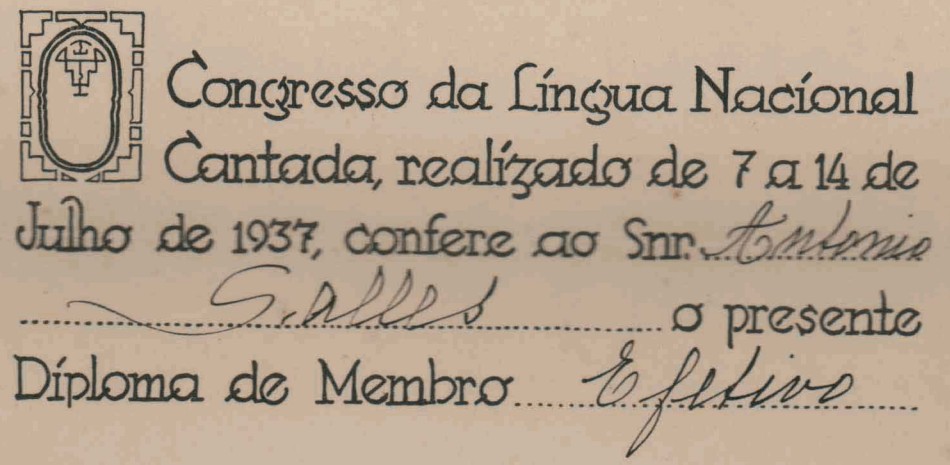 O Congresso da Língua Nacional
Cantada, realizado de 7 a 14 de
Julho de 1937, confere ao Snr. Antonio
Salles o presente
Diploma de Membro Efetivo